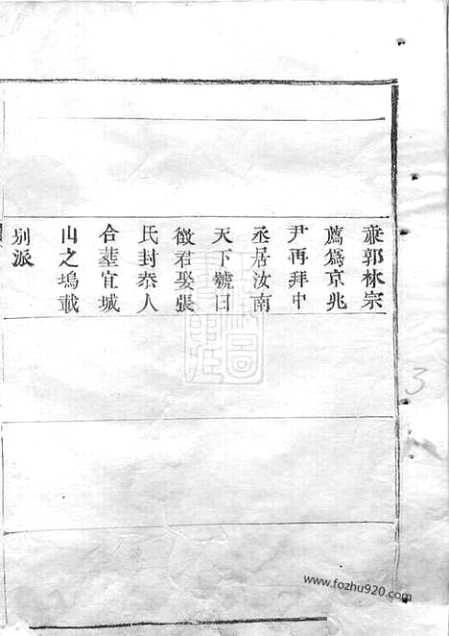 兼郭林宗
薦為京兆
尹再拜中
丞居汝南
天下號曰
徵君娶張
氏封泰人
合塟宜城
山之塢載
別派
3
www.fozhu920.com